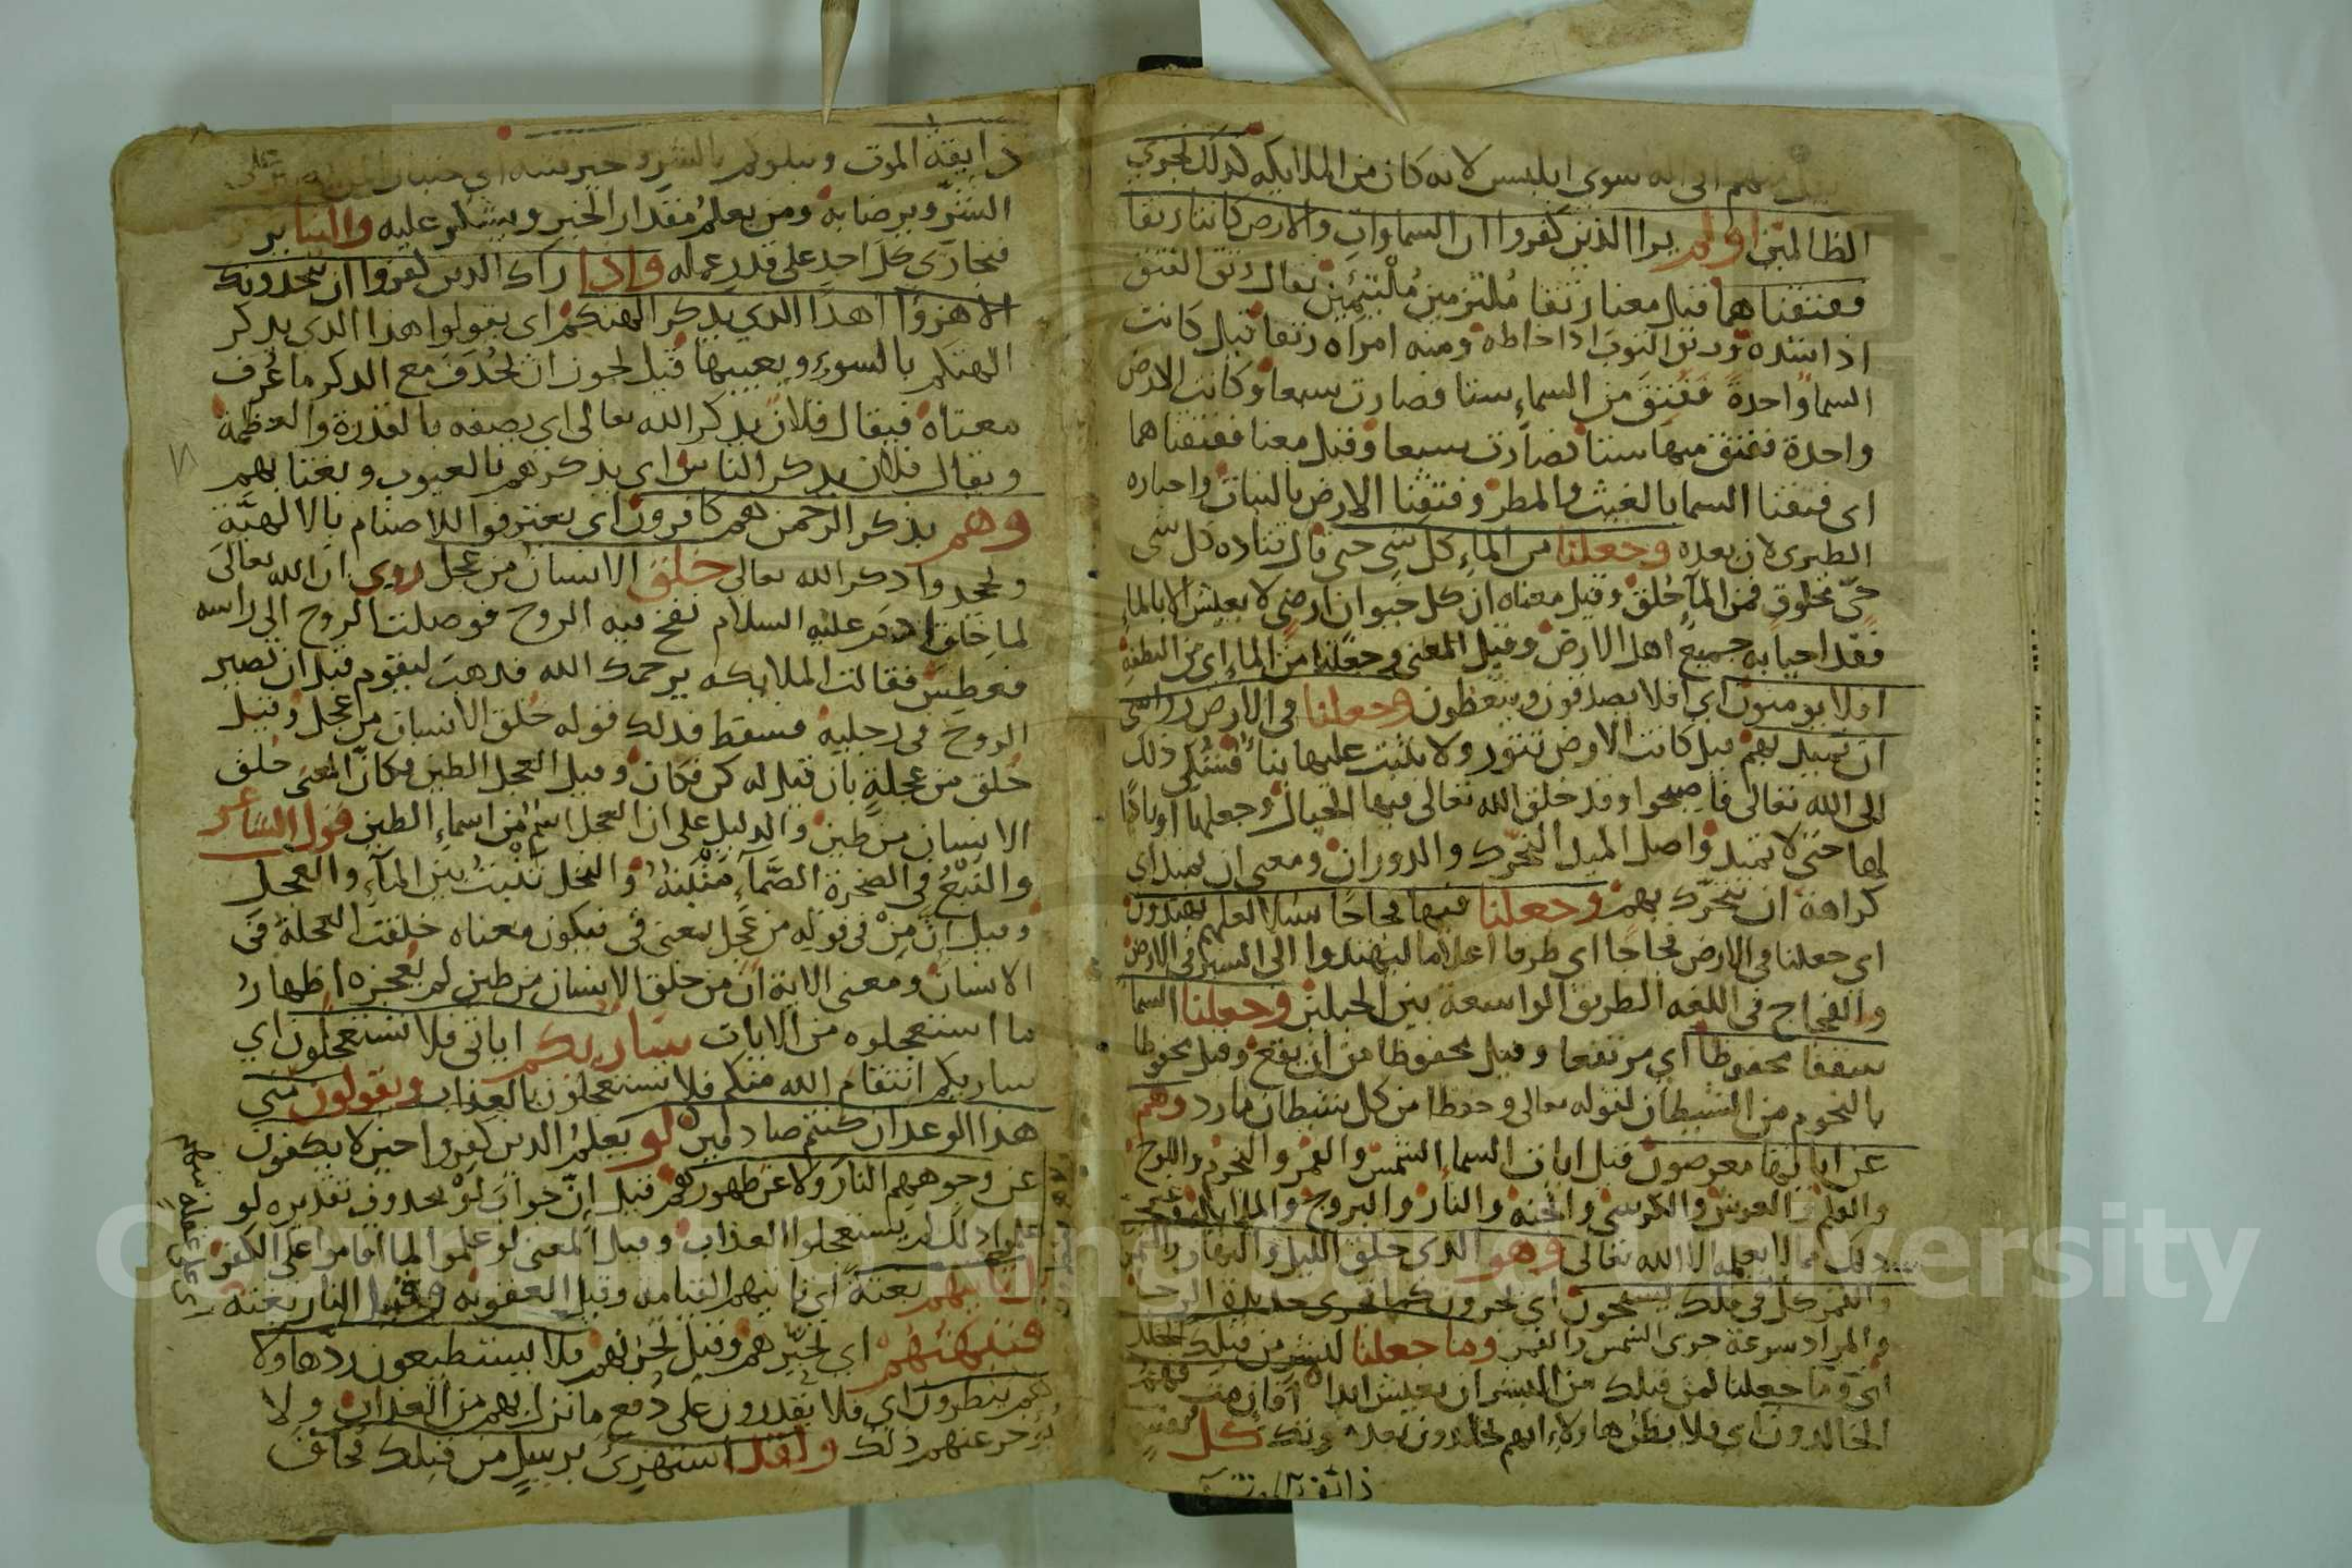 منهم انى اله سوى ابليس لانه كان من الملايكه كذلك نجزي
الظالمين اولم يرا الذين كفروا ان السماوات والارض كانتا رتقا
ففتقناهما قيل معنا رتقا ملتزمين ملتئمين يقال رتق الفتق
اذا سده ورتق الثوب اذا خاطه ومنه امراه رتقا قيل كانت
السما واحدة ففتق من السماء ستا فصارت سبعا وكانت الارض
واحدة ففتق منها ستا فصارت سبعا وقيل معنا ففتقناهما
اي فتقنا السما بالغيث والمطر وفتقنا الارض بالنبات واختاره
الطبري لان بعده وجعلنا من الماء كل شي حي قال قتاده كل شي
حي مخلوق فمن الماء خلق وقيل معناه ان كل حيوان ارضي لا يعيش الا بالماء
فقد احيا به جميع اهل الارض وقيل المعنى وجعلنا من الماء اي من النطفة
افلا يومنون اي افلا يصدقون ويتعظون وجعلنا في الارض رواسي
ان تميد بهم قيل كانت الارض تتور ولا يثبت عليها بنا فشكي ذلك
الى الله تعالى فاصبحوا وقد خلق الله تعالى فيها الجبال وجعلها اوتادا
لها حتى لا تميد واصل الميد التحرك والدوران ومعنى ان تميد اي
كراهة ان تتحرك بهم وجعلنا فيها فجاجا سبلا لعلهم يهتدون
اي جعلنا في الارض فجاجا اي طرقا اعلاما ليهتدوا الى السير في الارض
والفجاج في اللغه الطريق الواسعة بين الجبلين وجعلنا السما
سقفا محفوظا اي مرتفعا وقيل محفوظا من ان يقع وقيل محفوظا
بالنجوم من الشيطان لقوله تعالى وحفظا من كل شيطان مارد وهم
عن اياتها معرضون قيل ايات السماء الشمس والقمر والنجوم واللوح
والقلم والعرش والكرسي والجنه والنار والبروج والملايكه وغير
ذلك مما لا يعلمه الا الله تعالى وهو الذي خلق الليل والنهار والشمس
والقمر كل في فلك يسبحون اي يجرون كما تجري حديدة الرحا
والمراد سرعة جرى الشمس والقمر وما جعلنا لبشر من قبلك الخلد
اي وما جعلنا لمن قبلك من البشر ان يعيش ابدا افان مت فهم
الخالدون اي فلا يظن هاولاء انهم يخلدون بعد موتك كل نفس
ذائقة الموت
ذايقة الموت ونبلوكم بالشر والخير فتنه اي على
الشر ويرضا به ومن يعلم مقدار الخير ويشكر عليه والينا تر
فيجازي كل احد على قدر عمله واذا راك الذين كفروا ان يتخذونك
الا هزوا اهذا الذي يذكر الهتكم اي يقولوا هذا الذي يذكر
الهتكم بالسوء ويعيبها قيل يجوز ان يحذف مع الذكر ما عرف
معناه فيقال فلان يذكر الله تعالى اي يصفه بالقدرة والعظمة
ويقال فلان يذكر الناس اي يذكرهم بالعيوب ويغتابهم
وهم بذكر الرحمن هم كافرون اي يعترفوا للاصنام بالالهية
ويجحدوا ذكر الله تعالى خلق الانسان من عجل روي ان الله تعالى
لما خلق ادم عليه السلام نفخ فيه الروح فوصلت الروح الى راسه
فعطس فقالت الملايكه يرحمك الله فذهب ليقوم قبل ان تصير
الروح في رجليه فسقط فذلك قوله خلق الانسان من عجل وقيل
خلق من عجلة بان قيل له كن فكان وقيل العجل الطين فكان المعنى خلق
الانسان من طين والدليل على ان العجل اسم من اسماء الطين قول الشاعر
والنبع في الصخرة الصماء منبته والنخل تنبت بين الماء والعجل
وقيل ان من في قوله من عجل بمعنى في فيكون معناه خلقت العجلة في
الانسان ومعنى الاية ان من خلق الانسان من طين لم يعجزه اظهار
ما استعجلوه من الايات ساريكم اياتي فلا تستعجلون اي
ساريكم انتقام الله منكم فلا تستعجلون بالعذاب ويقولون متي
هذا الوعد ان كنتم صادقين لو يعلم الذين كفروا حين لا يكفون
عن وجوههم النار ولا عن ظهورهم قيل ان جواب لو محذوف تقديره لو
علموا ذلك لم يستعجلوا العذاب وقيل المعنى لو علموا لما اقاموا على الكفر
بل تاتيهم بغتة اي تاتيهم القيامه وقيل العقوبه وقيل النار بغتة
فتبهتهم اي تحيرهم وقيل تخزيهم فلا يستطيعون ردها ولا
هم ينظرون اي فلا يقدرون على دفع ما نزل بهم من العذاب ولا
يوخر عنهم ذلك ولقد استهزئ برسل من قبلك فحاق